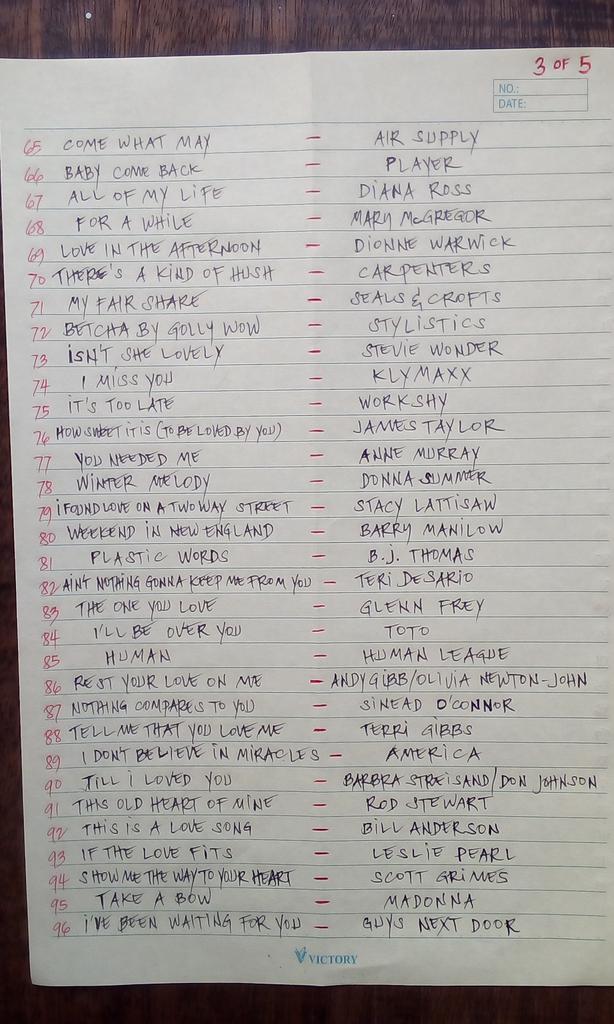 3 OF 5
NO.:
DATE:
65 COME WHAT MAY - AIR SUPPLY
66 BABY COME BACK - PLAYER
67 ALL OF MY LIFE - DIANA ROSS
68 FOR A WHILE - MARY McGREGOR
69 LOVE IN THE AFTERNOON - DIONNE WARWICK
70 THERE'S A KIND OF HUSH - CARPENTERS
71 MY FAIR SHARE - SEALS & CROFTS
72 BETCHA BY GOLLY WOW - STYLISTICS
73 ISN'T SHE LOVELY - STEVIE WONDER
74 I MISS YOU - KLYMAXX
75 IT'S TOO LATE - WORKSHY
76 HOW SWEET IT IS (TO BE LOVED BY YOU) - JAMES TAYLOR
77 YOU NEEDED ME - ANNE MURRAY
78 WINTER MELODY - DONNA SUMMER
79 I FOUND LOVE ON A TWO WAY STREET - STACY LATTISAW
80 WEEKEND IN NEW ENGLAND - BARRY MANILOW
81 PLASTIC WORDS - B.J. THOMAS
82 AIN'T NOTHING GONNA KEEP ME FROM YOU - TERI DESARIO
83 THE ONE YOU LOVE - GLENN FREY
84 I'LL BE OVER YOU - TOTO
85 HUMAN - HUMAN LEAGUE
86 REST YOUR LOVE ON ME - ANDY GIBB/OLIVIA NEWTON-JOHN
87 NOTHING COMPARES TO YOU - SINEAD O'CONNOR
88 TELL ME THAT YOU LOVE ME - TERRI GIBBS
89 I DON'T BELIEVE IN MIRACLES - AMERICA
90 TILL I LOVED YOU - BARBRA STREISAND/DON JOHNSON
91 THIS OLD HEART OF MINE - ROD STEWART
92 THIS IS A LOVE SONG - BILL ANDERSON
93 IF THE LOVE FITS - LESLIE PEARL
94 SHOW ME THE WAY TO YOUR HEART - SCOTT GRIMES
95 TAKE A BOW - MADONNA
96 I'VE BEEN WAITING FOR YOU - GUYS NEXT DOOR
VICTORY